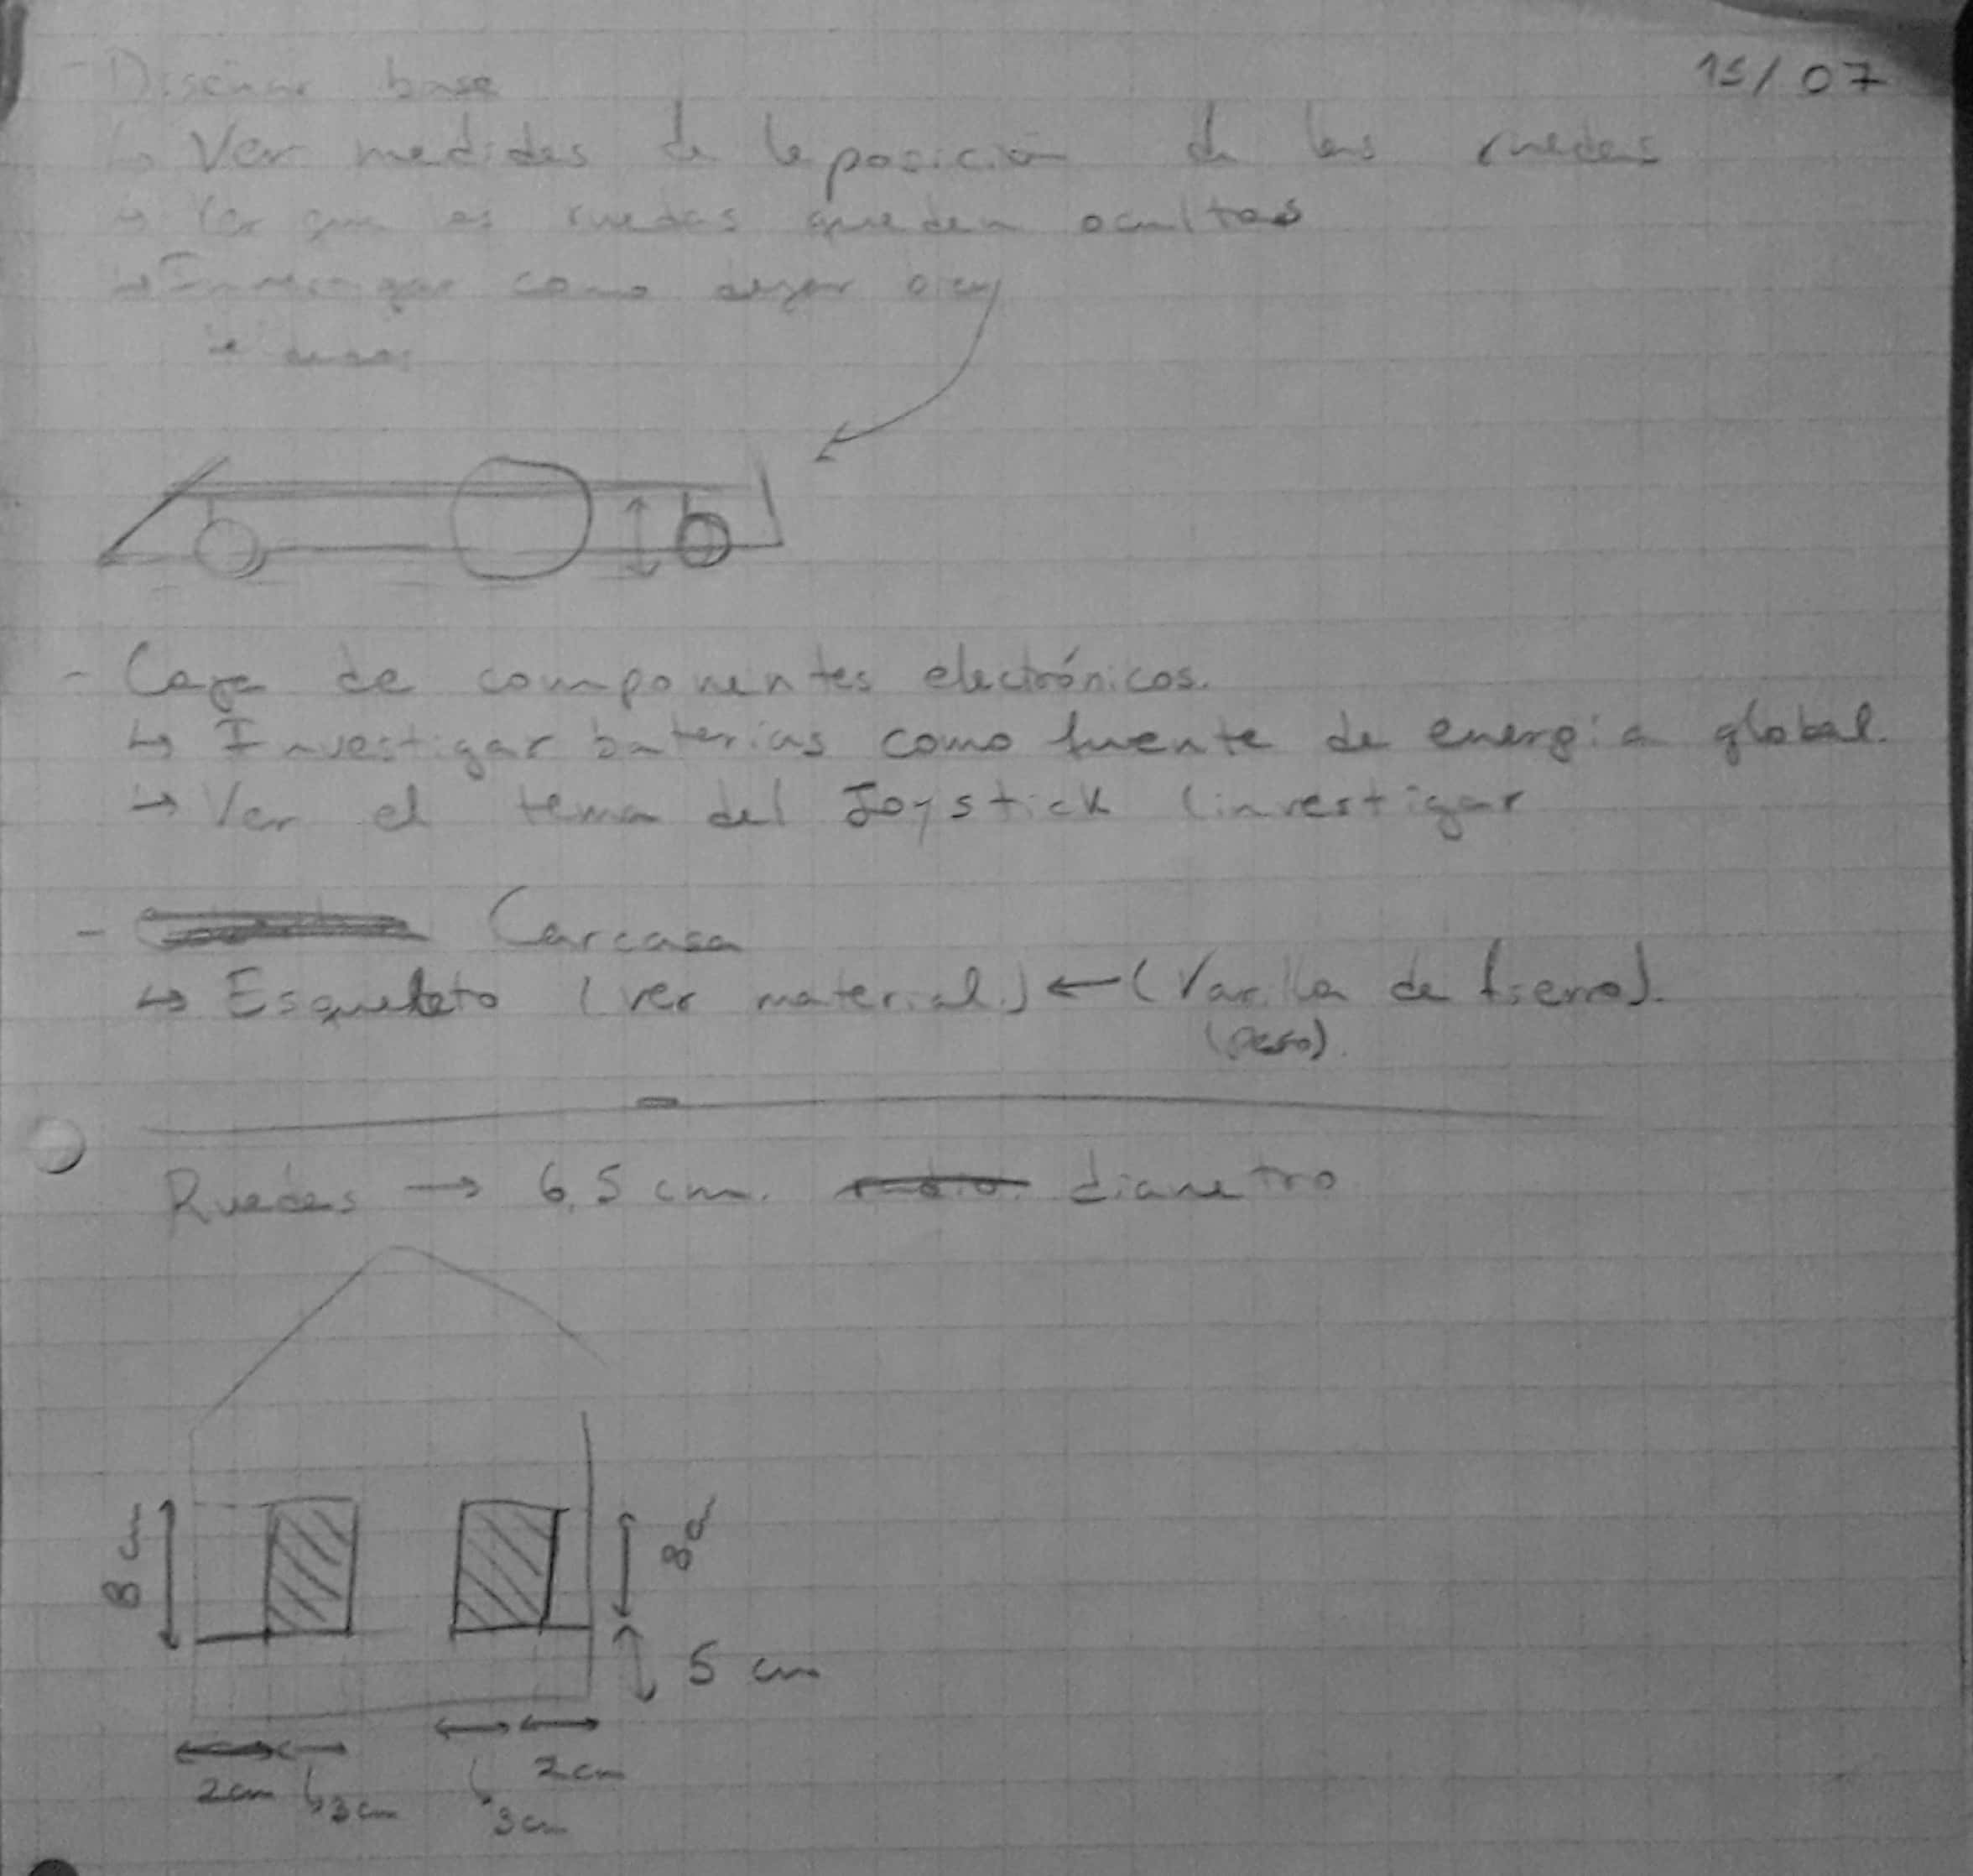 15/07
- Diseñar base
↳ Ver medidas de la posición de las ruedas
↳ Ver que las ruedas queden ocultas
↳ Investigar como
- Caja de componentes electrónicos.
↳ Investigar baterias como fuente de energia global.
→ Ver el tema del Joystick (investigar
- Carcasa
↳ Esqueleto (ver material.) ← (Varilla de fierro).
(peso).
Ruedas → 6,5 cm. diametro
8 cm
8 cm
5 cm
2cm 3cm
2cm
3cm